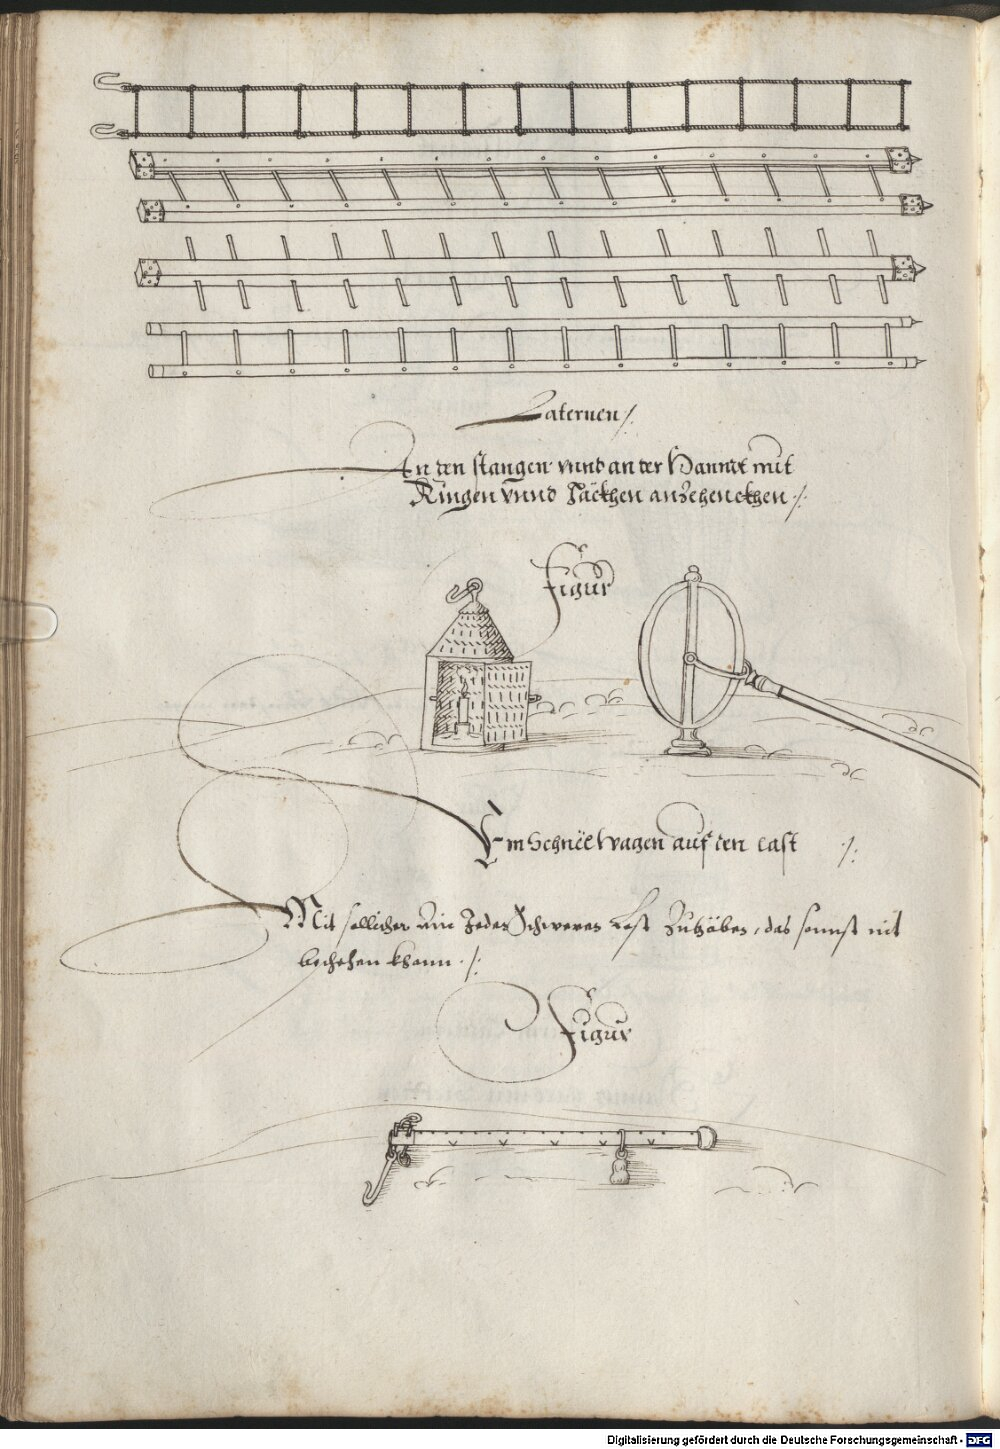 Laternen /:
An den stangen vnnd an der Hanndt mit
Ringen vnnd Häckhen anzehenckhen ·/:
Figur
Ein Schnëlwagen auf den Last ·/:
Mit sollicher ein Jeder Schweren Last Zuhäben, das sonnst nit
beschehen khann ·/:
Figur
Digitalisierung gefördert durch die Deutsche Forschungsgemeinschaft - DFG